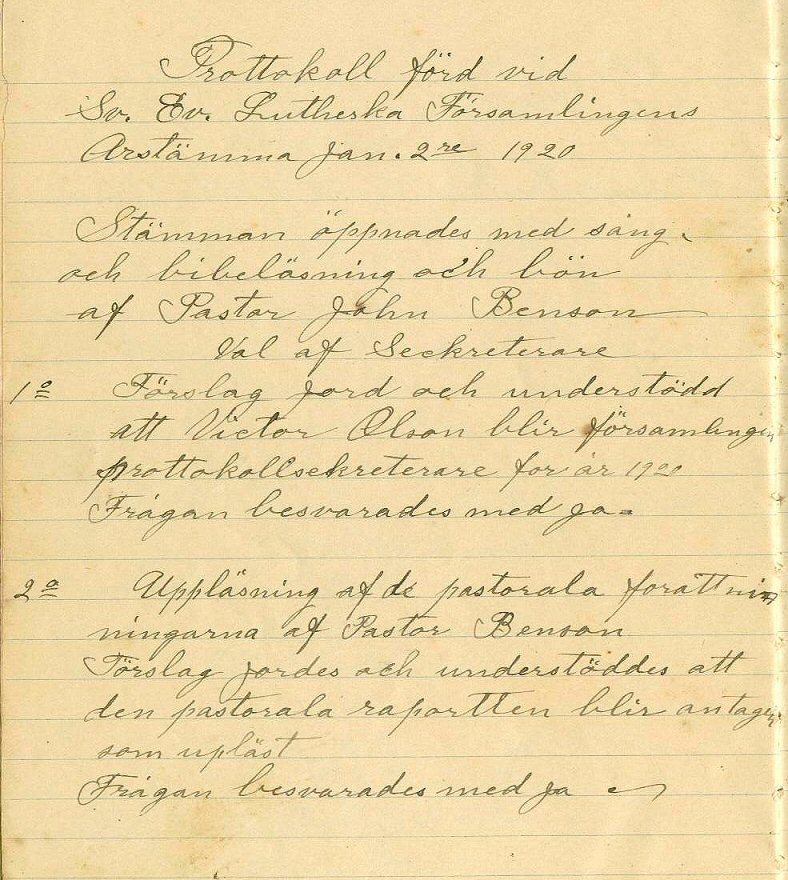 Prottokoll förd vid
Sv. Ev. Lutherska Församlingens
Arstämma Jan. 2re 1920
Stämman öppnades med sång
och bibeläsning och bön
af Pastor John Benson
Val af Seckreterare
1o Förslag jord och understödd
att Victor Olson blir församlingen
prottokollsekreterare for år 1920
Frågan besvarades med ja
2a Uppläsning af de pastorala
ningarna af Pastor Benson
Förslag jordes och understöddes att
den pastorala raportten blir antagen
som upläst
Frågan besvarades med ja